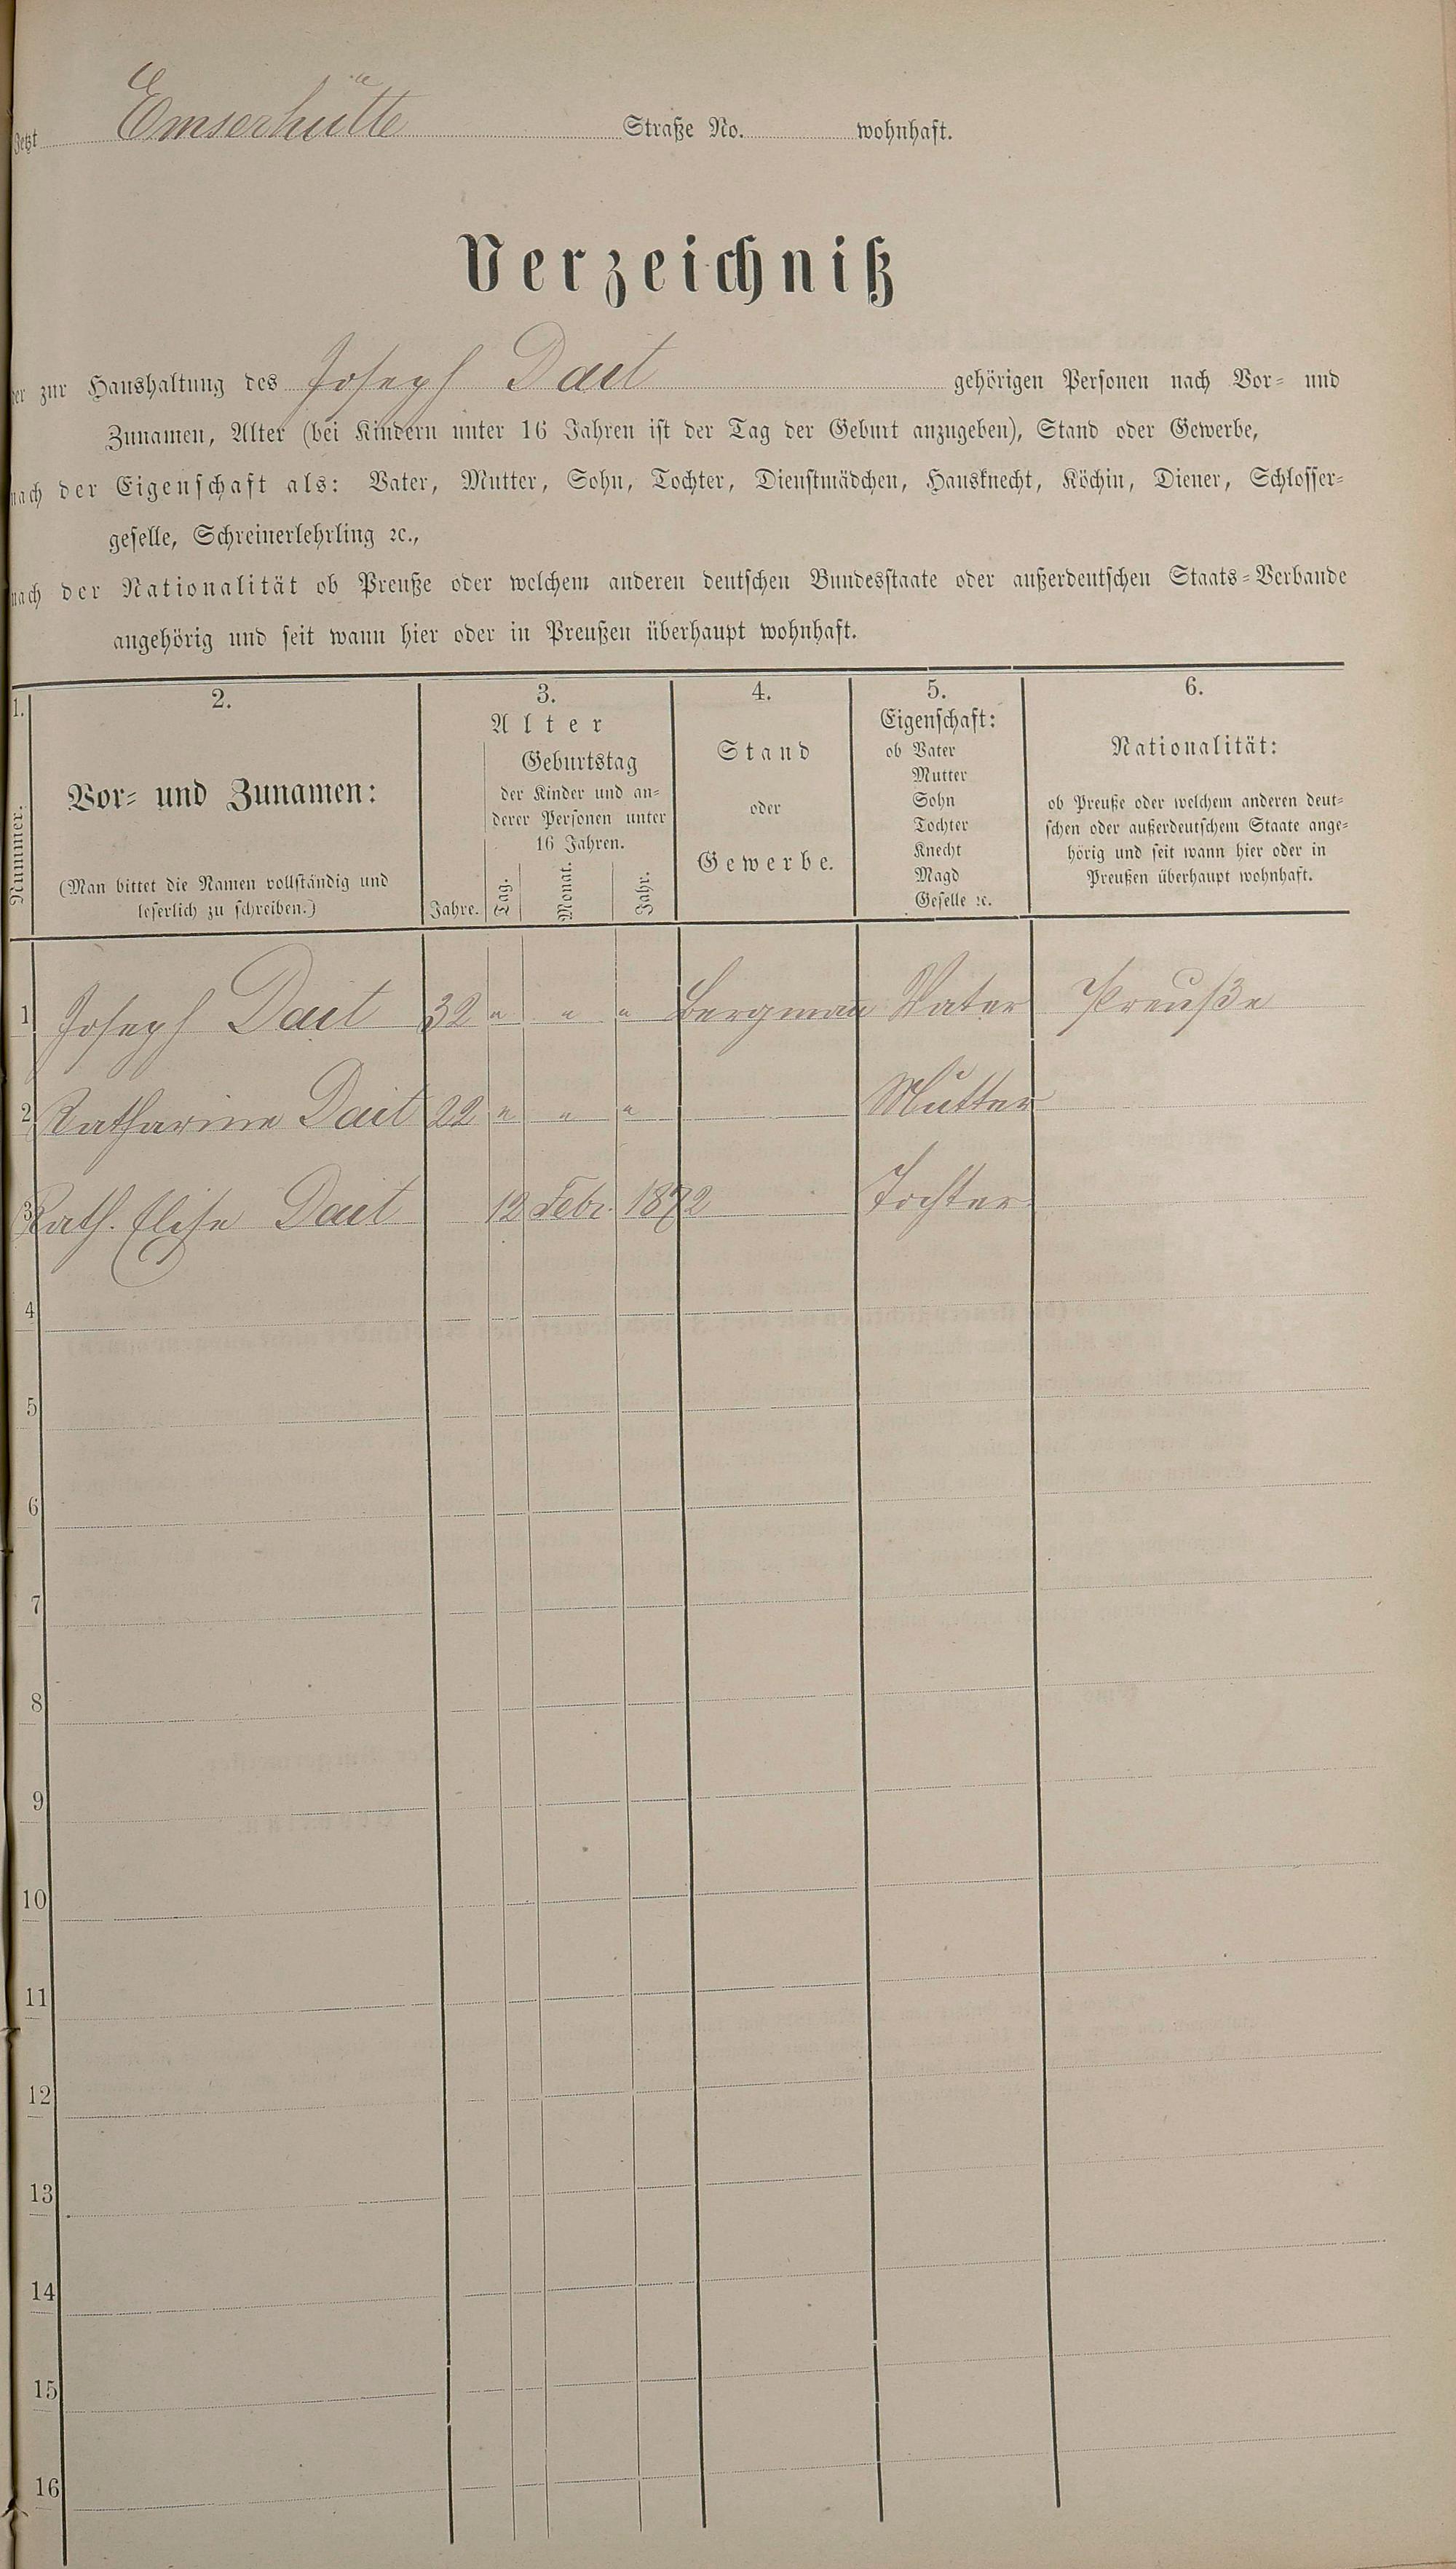 Jetzt Emserhütte Straße No. wohnhaft.
Verzeichniß
der zur Haushaltung des Joseph Dait gehörigen Personen nach Vor- und
Zunamen, Alter (bei Kindern unter 16 Jahren ist der Tag der Geburt anzugeben), Stand oder Gewerbe,
nach der Eigenschaft als: Vater, Mutter, Sohn, Tochter, Dienstmädchen, Hausknecht, Köchin, Diener, Schlosser-
geselle, Schreinerlehrling ꝛc.,
nach der Nationalität ob Preuße oder welchem anderen deutschen Bundesstaate oder außerdeutschen Staats-Verbande
angehörig und seit wann hier oder in Preußen überhaupt wohnhaft.
1.
Nummer.
2.
Vor- und Zunamen:
(Man bittet die Namen vollständig und
leserlich zu schreiben.)
3.
Alter
Jahre.
Geburtstag
der Kinder und an-
derer Personen unter
16 Jahren.
Tag. Monat. Jahr.
4.
Stand
oder
Gewerbe.
5.
Eigenschaft:
ob Vater
Mutter
Sohn
Tochter
Knecht
Magd
Geselle ꝛc.
6.
Nationalität:
ob Preuße oder welchem anderen deut-
schen oder außerdeutschem Staate ange-
hörig und seit wann hier oder in
Preußen überhaupt wohnhaft.
1 Joseph Dait 32 " " " Bergman̄ Vater Preuße
2 Katharine Dait 22 " " " Mutter
3 Kath. Elise Dait 12 Febr. 1872 Tochter
4
5
6
7
8
9
10
11
12
13
14
15
16